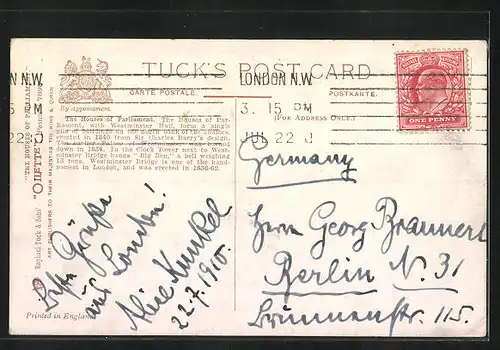 TUCK'S POST CARD
CARTE POSTALE.
POSTKARTE.
(FOR ADDRESS ONLY.)
By Appointment.
N N.W.
5 PM
22
LONDON N.W.
3. 15 PM
JUL 22
ONE PENNY
The Houses of Parliament. The Houses of Par-
liament, with Westminster Hall, form a single
pile of buildings on the north bank of the Thames,
erected in 1840 from Sir Charles Barry's design.
The earlier Palace of Westminster was burned
down in 1834. In the Clock Tower next to West-
minster Bridge hangs "Big Ben," a bell weighing
13 tons. Westminster Bridge is one of the hand-
somest in London, and was erected in 1856-62.
"THE HOUSES OF PARLIAMENT"
"OILETTE"
Raphael Tuck & Sons'
ART PUBLISHERS TO THEIR MAJESTIES THE KING & QUEEN
Printed in England
Beste Grüße
aus London!
Alice Kunkel
22.7.1910.
Germany
Herrn Georg Brannert
Berlin N. 31
Brunnenstr. 115.